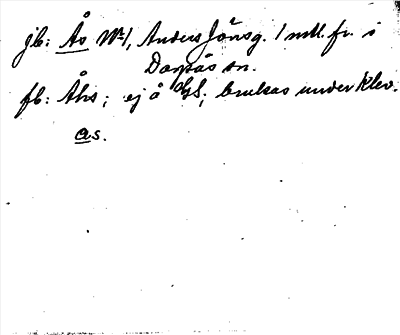 jb: Ås Nr 1, Anders Jönsg. 1 mtl. fr. i
sn.
fb: Åhs; ej å GS; brukas under Klev.
as.